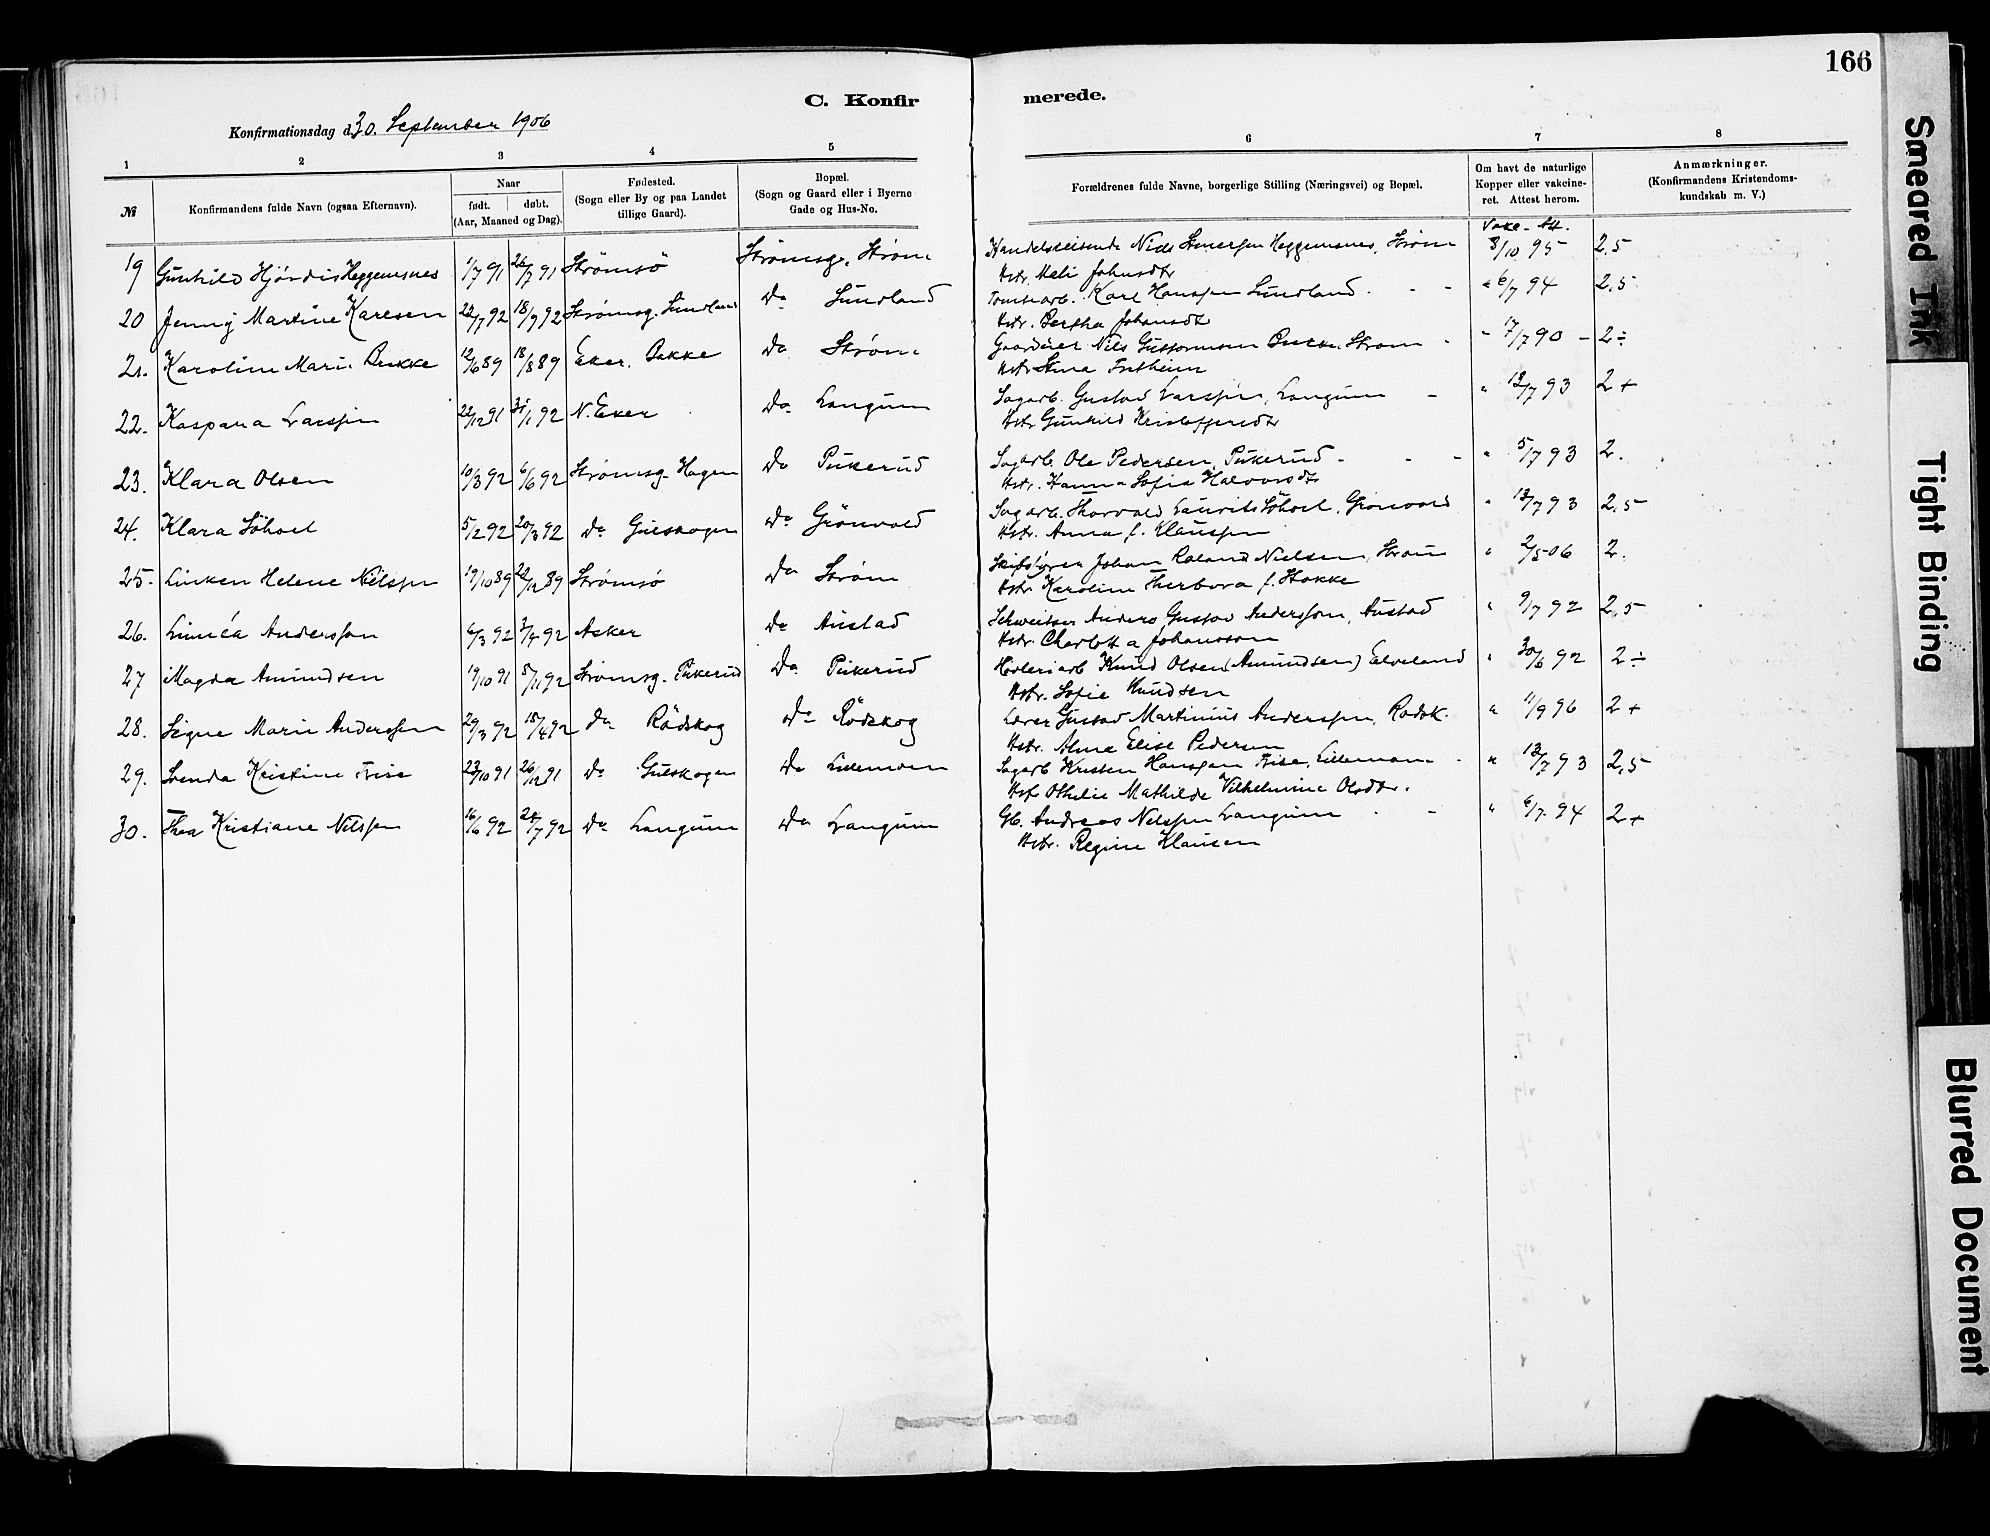 166
C. Konfir merede.
Konfirmationsdag d. 30. September 1906
1 2 3 4 5 6 7 8
№
Konfirmandens fulde Navn (ogsaa Efternavn).
Naar
født. døbt.
(Aar, Maaned og Dag).
Fødested.
(Sogn eller By og paa Landet
tillige Gaard).
Bopæl.
(Sogn og Gaard eller i Byerne
Gade og Hus-No.
Forældrenes fulde Navne, borgerlige Stilling (Næringsvei) og Bopæl.
Om havt de naturlige
Kopper eller vakcine-
ret. Attest herom.
Anmærkninger.
(Konfirmandens Kristendoms-
kundskab m. V.)
Vakc. Att.
19 Gunhild Hjördis Heggemsnes 1/7 91 26/7 91 Strömsö Strömsg. Strøm Handelsreisende Nils Heggemsnes, Strøm 3/10 95 2.5
Hstr. Meli Johnsdtr
20 Jenny Martine Karlsen 22/7 92 18/9 92 Strømsg. Sundland Do Sundland Tomtearb. Karl Hanssen Sundland. - - " 6/7 94 2.5
Hstr. Bertha Johansdtr
21. Karoline Marie Bakke 12/6 89 18/8 89 Eker, Bakke Do Strøm Gaardeier Nils Guttormsen Bakke, Strøm - " 17/7 90 - 2÷
Hstr Stina
22. Kaspara Larssen 22/12 91 31/1 92 N. Eker Do Langum Sagarb. Gustav Larssen, Langum - " 13/7 93 2+
Hstr Gunhild Kristoffersdtr
23. Klara Olsen 10/3 92 6/6 92 Strømsg. Hagen Do Pukerud Sagarb. Ole Pedersen, Pukerud - - - " 5/7 93 2.
Hstr. Hanna Sofie Halvorsdtr
24. Klara Söhoel 5/2 92 20/3 92 Do Gulskogen Do Grönvold Sagarb. Thorvald Laurits Söhoel, Grönvold " 13/7 93 2.5
Hstr. Anna f. Klaussen
25. Linken Helene Nielssen 19/10 89 22/12 89 Strømsø Do Strøm Skibsfører Johan Roland Nielsen, Strøm " 2/5 06 2.
Hstr Karoline Therbora f. Stokke
26. Linnéa Anderssen 6/3 92 3/4 92 Asker Do Austad Schweitser Anders Gustav Anderssen, Austad " 9/7 92 2.5
Hstr. Charlotta Johansson
27 Magda Amundsen 19/10 91 5/11 92 Strømsg. Pukerud Do Pukerud Høvleriarb Knud Olsen (Amundsen) Eelveland " 30/6 92 2÷
Hstr. Sofie Knudsen
28. Signe Marie Anderssen 29/3 92 18/4 92 Do Rödskog Do Rödskog Lærer Gustav Martinius Anderssen, Rødsk. " 11/9 96 2+
Hstr. Alma Elise Pedersen
29. Svenda Kristine Frise 23/10 91 26/12 91 Do Gulskogen Do Lillemoen Sagarb Kristen Hanssen Frise, Lillemoen - " 13/7 93 2.5
Hstr Othilie Mathilde Vilhelmine Olsdtr.
30. Thea Kristiane Nilssen 16/6 92 24/7 92 Do Langum Do Langum Gb. Andreas Nilssen Langum - - " 6/7 94 2+
Hstr. Regine Klausen
Smeared Ink
Tight Binding
Blurred Document